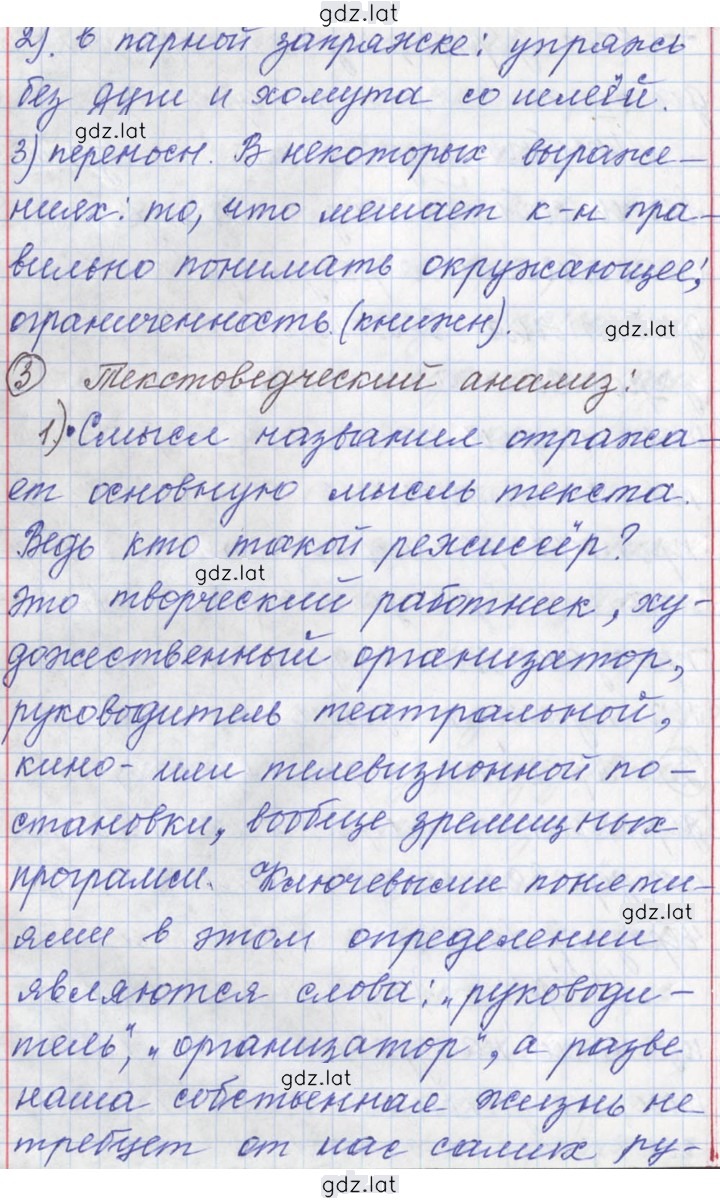 gdz.lat
2). в парной запряжке: упряжь
без дуги и хомута со шлеёй.
gdz.lat
3) переносн. В некоторых выраже-
ниях: то, что мешает к-н пра-
вильно понимать окружающее;
ограниченность (книжн).
gdz.lat
③ Текстоведческий анализ:
1) • Смысл названия отража-
ет основную мысль текста.
Ведь кто такой режиссёр?
gdz.lat
Это творческий работник, ху-
дожественный организатор,
руководитель театральной,
кино- или телевизионной по-
становки, вообще зрелищных
программ. Ключевыми поняти-
gdz.lat
ями в этом определении
являются слова: „руководи-
тель", „организатор", а разве
gdz.lat
наша собственная жизнь не
требует от нас самих ру-
gdz.lat